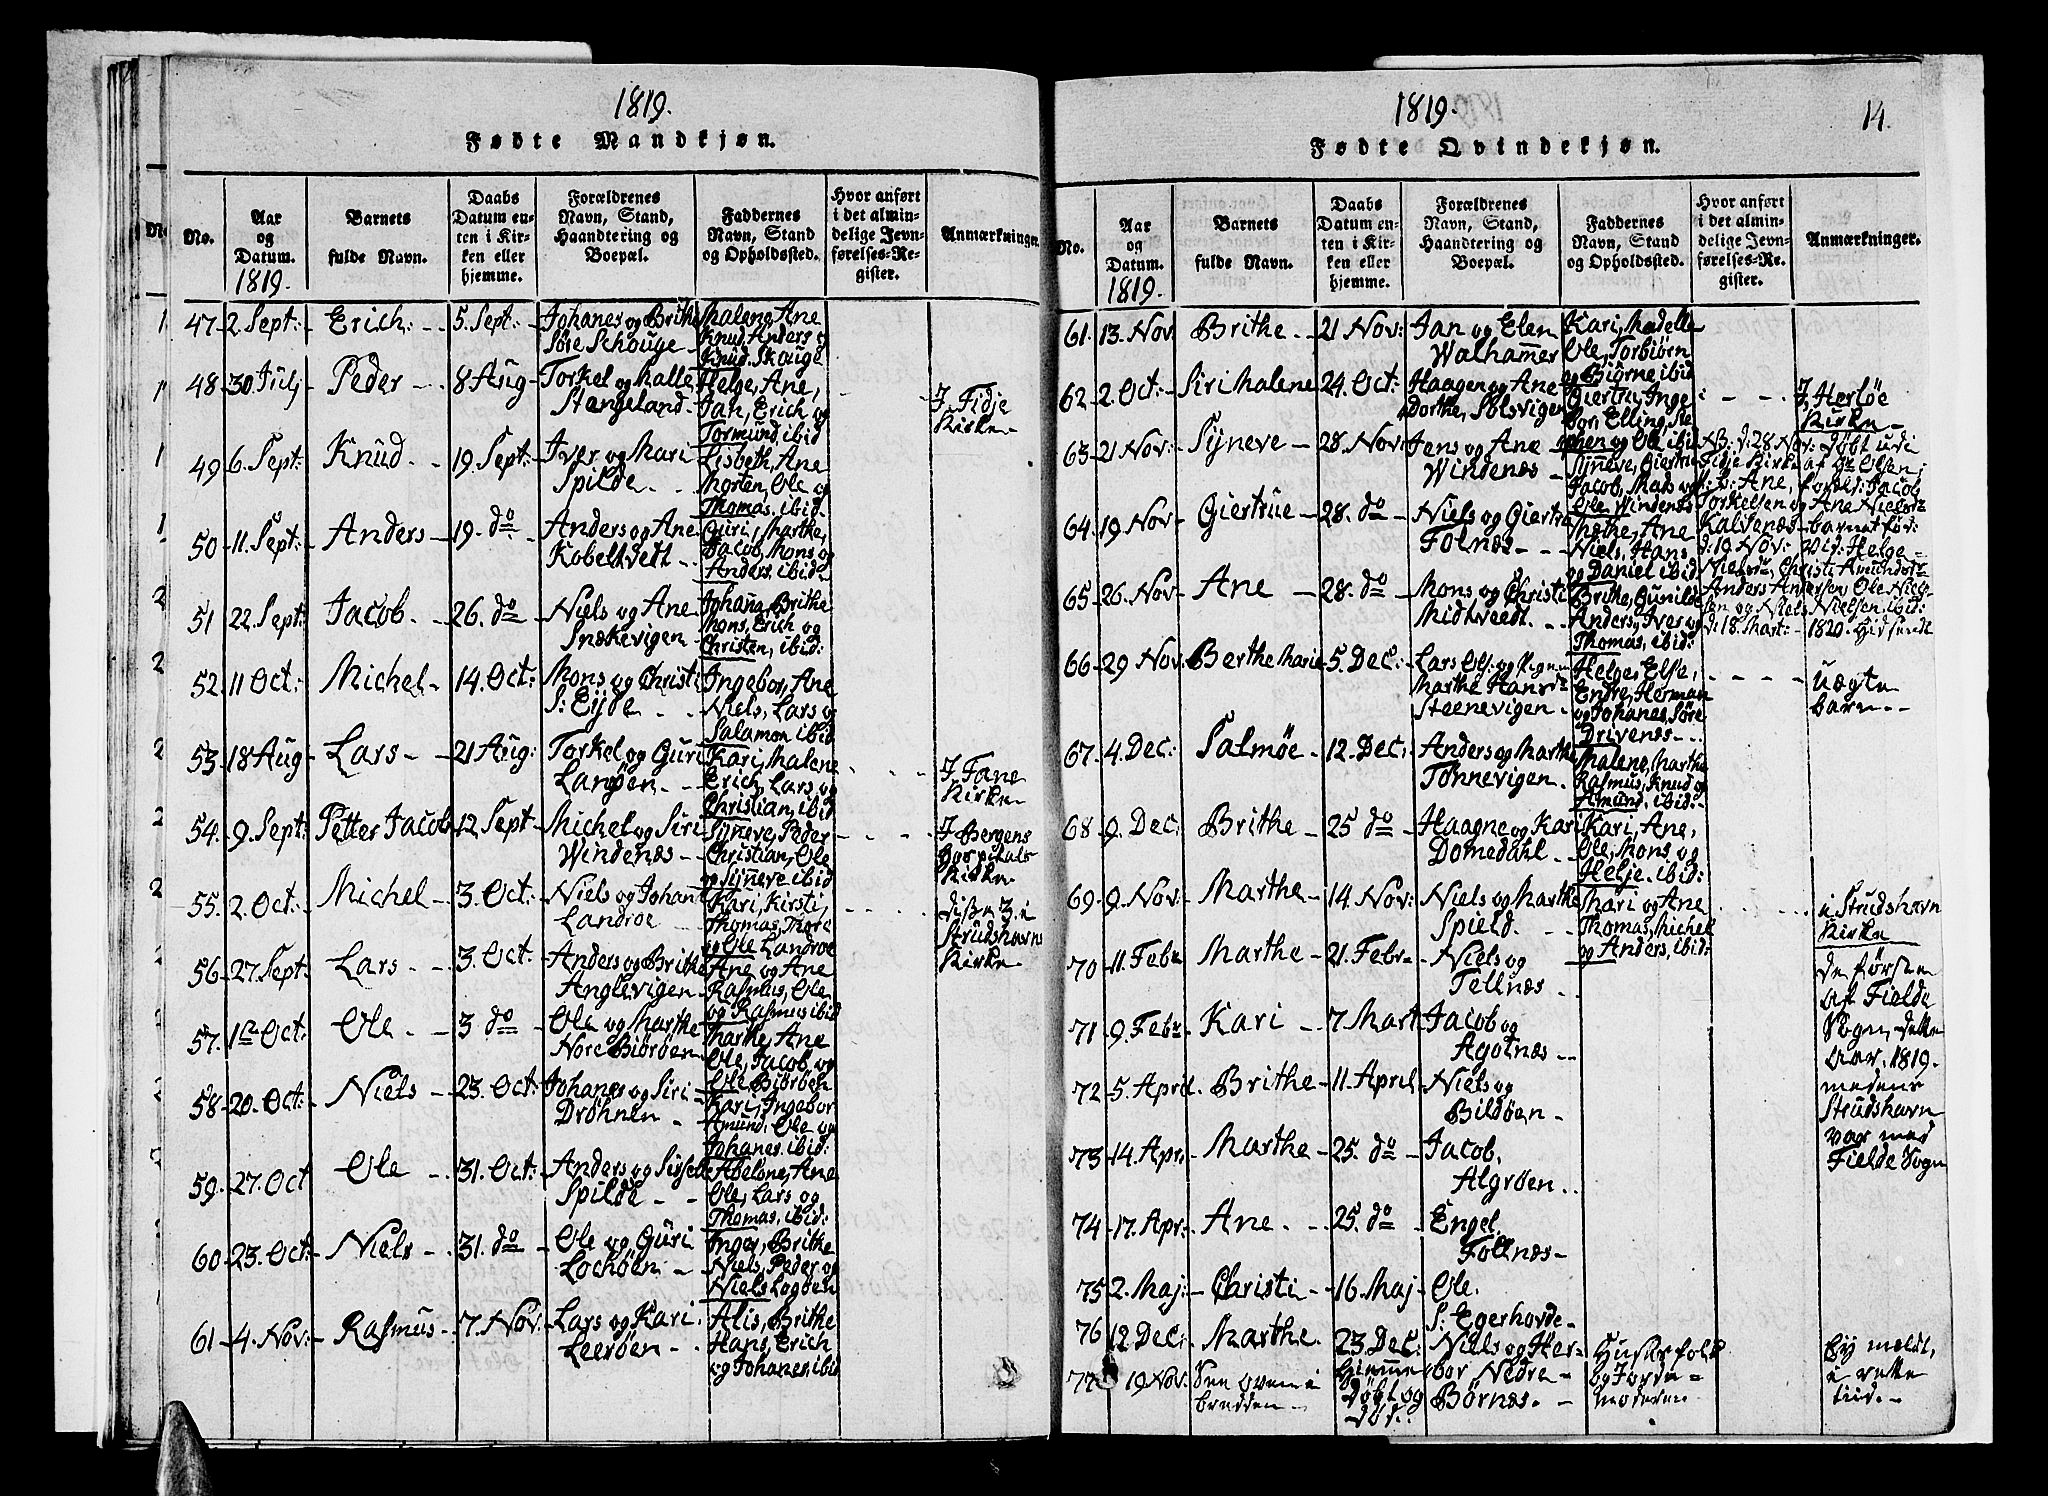 1819.
Fødte Mandkjøn.
No.
Aar
og
Datum.
1819.
Barnets
fulde Navn.
Daabs
Datum en-
ten i Kir-
ken eller
hjemme.
Forældrenes
Navn, Stand,
Haandtering og
Boepæl.
Faddernes
Navn, Stand
og Opholdssted.
Hvor anført
i det almin-
delige Jevn-
førelses-Re-
gister.
Anmærkninger.
47 2. Sept: Erich. 5. Sept: Johanes og Brithe
Søre Schouge
Malene, Ane
Knud, Anders og
Knud. Skouge
48 30 Julj Peder 8 Aug Torkel og Malle
Stangeland.
Helge, Ane,
Jan, Erich og
Tormund, ibid
J. Fidje
Kirke
49 6. Sept: Knud. 19. Sept: Iver og Mari
Spilde.
Lisbeth, Ane
Morten, Ole og
Thomas. ibid.
50 11. Sept: Anders 19. do Anders og Ane
Kobeltvedt
Guri, Marthe,
Jacob, Mons og
Anders, ibid
51 22. Sept: Jacob. 26. do Niels og Ane
Snækevigen
Johana, Brithe
Mons, Erich og
Christen, ibid:
52 11 Oct: Michel 14. Oct: Mons og Christi
S: Eyde
Ingebor, Ane
Niels, Lars og
Salamon ibid
53 18 Aug Lars 21 Aug: Torkel og Guri
Langøen
Kari, Malene
Erich, Lars og
Christian, ibid
J. Fane
Kirke
54. 9. Sept: Petter Jacob 12 Sept Michel og Siri
Windenæs
Syneve, Peder
Christian, Ole
og Syneve ibid
J Bergens
Hospitals
Kirke
55. 2. Oct: Michel 3. Oct: Niels og Johana
Landroe
Kari, Kirsti,
Thomas, Thore
og Ole Landroe
disse 3. i
Strudshavns
Kirke
56 27. Sept Lars 3. Oct: Anders og Brithe
Anglevigen
Ane og Ane
Rasmus, Ole
og Rasmus ibid
57. 1te Oct: Ole 3 do Ole og Marthe
Nore Biørøen
Marthe, Ane
Ole, Jacob og
Ole Biørøen
58 20. Oct: Niels 23. Oct: Johanes og Siri
Drøhnen
Kari, Ingebor
Amund, Ole og
Johanes. ibid:
59. 27. Oct Ole 31. Oct: Anders og Sissele
Spilde
Abelone, Ane
Ole, Lars og
Thomas, ibid:
60 23. Oct: Niels 31. do Ole og Guri
Lochøen
Inger, Brithe
Niels, Peder og
Niels Logøen
61 4. Nov: Rasmus 7. Nov: Lars og Kari
Leerøen
Alis, Brithe
Hans, Erich
og Johanes, ibid
1819.
14.
Fødte Qvindekjøn.
No.
Aar
og
Datum.
1819.
Barnets
fulde Navn.
Daabs
Datum en-
ten i Kir-
ken eller
hjemme.
Forældrenes
Navn, Stand,
Haandtering og
Boepæl.
Faddernes
Navn, Stand
og Opholdssted.
Hvor anført
i det almin-
delige Jevn-
førelses-Re-
gister.
Anmærkninger.
61. 13. Nov Brithe 21 Nov: Jan og Elen
Walhammer
Kari, Madelle
Ole, Torbiørn
og Biørne ibid
62 2. Oct: Siri Malene 24. Oct: Haagen og Ane
Dorthe, Solsvigen
Giertru, Inge
bor, Elling, Ste
phen og Ole ibid
J, Herløe
Kirke
63 21 Nov: Syneve 28. Nov Jens og Ane
Windenæs
Syneve, Giertru
Jacob, Mads og
Ole Windenæs
NB: d: 28. Nov: døbt udi
Fidje Kirke af Hr Olsen;
Ane, foreld: Jacob
Torkelsen og Ane Nielsdr
Kalvenæs barnet fød:
d: 19. Nov: Vid: Helge
Nielsdr, Christi Amundsdr
Anders Andersen, Ole Niel-
sen og Niels Nielsen, ibid:
d: 18. Mart: 1820. Hidsendt
64 19 Nov Giertrue 28. do Niels og Giertru
Folnæs
Marthe, Ane
Niels, Hans
og Daniel ibid
65 26. Nov Ane 28. do Mons og Christi
Midtveedt
Brithe, Gunilde
Anders, Iver og
Thomas, ibid:
66 29 Nov: Berthe Marie 5. Dec: Lars Ols: og Pigen
Marthe Hansdr
Steenevigen
Helge, Else,
Endre, Herman
og Johanes, Søre
Drivenæs
Uægte
barn
67. 4. Dec: Salmøe 12. Dec: Anders og Marthe
Tønnevigen.
Malene, Marthe
Rasmus, Knud og
Amund, ibid:
68 9. Dec: Brithe 25 do Haagne og Kari
Domedahl
Kari, Ane,
Ole, Mons og
Helje. ibid:
69. 9. Nov: Marthe 14 Nov: Niels og Marthe
Spield.
Mari og Ane
Thomas, Michel
og Anders, ibid:
i Strudshavn
Kirke
70 11. Febr Marthe 21. Febr Niels og
Tellnæs
de første
af Fielde
Sogn, dette
Aar. 1819.
medens
Strudshavn
var med
Fielde Sogn
71 9. Febr Kari 7 Mart Jacob og
Agotnæs
72 5. April Brithe 11 April Niels og
Bildøen
73 14. Apr: Marthe 25. do Jacob,
Algrøen
74 17. Apr: Ane 25. do Engel
Follnæs
75 2. Maj: Christi 16. Maj Ole
S: Egerhovde
76 12 Dec: Marthe 23. Dec:
Hiemme
døbt og
død:
Niels og Her-
bor Nedre
Børnæs.
Husets folk
og Jorde=
moderen
Ey meldt,
i rette
tiid.
77 19 Nov: